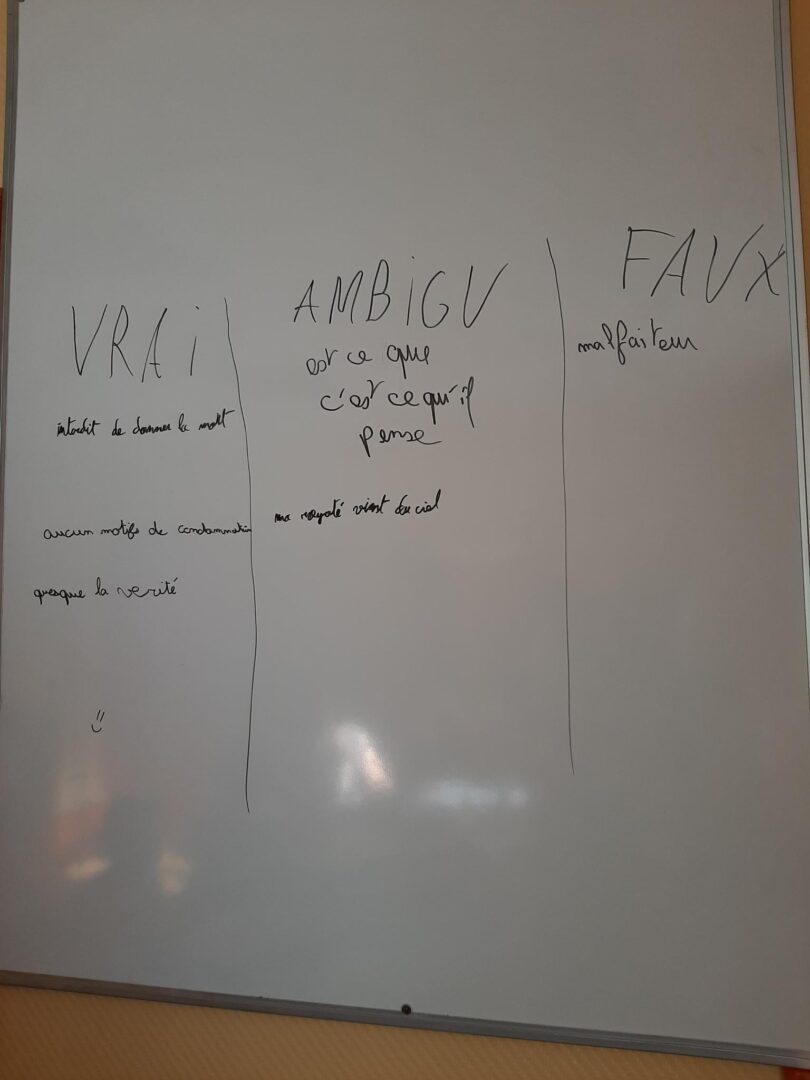 VRAi
interdit de donner la mort
aucun motifs de condamnation
quesque la verité
AMBiGU
est ce que
c'est ce qu'il
pense
ma royauté vient du ciel
FAUX
malfaiteur